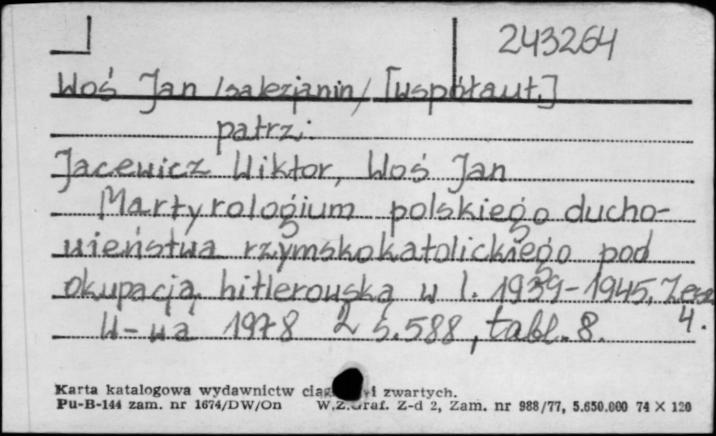 243264
Woś Jan /salezjanin/ [współaut.]
patrz:
Jacewicz Wiktor, Woś Jan
Martyrologium polskiego ducho-
wieństwa rzymskokatolickiego pod
okupacją hitlerowską w l. 1939-1945. Zesz
4.
W-wa 1978 2 s. 588, tabl. 8.
Karta katalogowa wydawnictw i zwartych.
Pu-B-144 zam. nr 1674/DW/On W.Z.Graf. Z-d 2, Zam. nr 988/77, 5.650.000 74 × 120